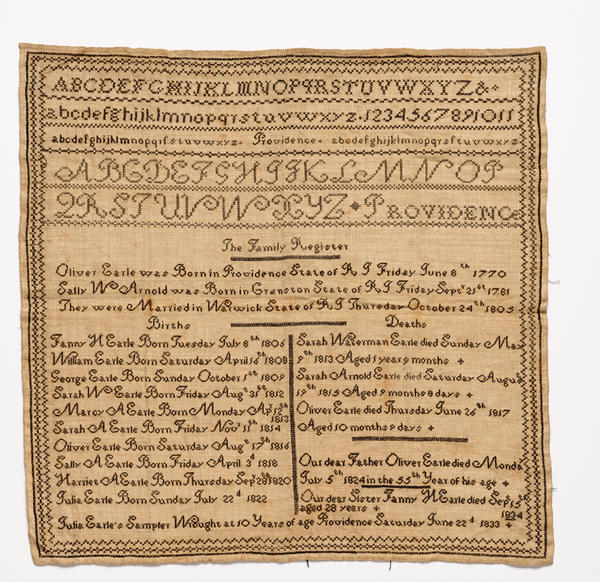 ABCDEFGHIJKLMNOPQRSTUVWXYZ&
abcdefghijklmnopqrstuvwxyz. 1234567891011
abcdefghijklmnopqrsſtuvwxyz. Providence. abcdefghijklmnopqrsſtuvwxyz
ABCDEFGHIJKLMNOP
QRSTUVWXYZ PROVIDENCE
The Family Register
Oliver Earle was Born in Providence State of R I Friday June 8th 1770
Sally W Arnold was Born in Cranston State of R I Friday Sept 21st 1781
They were Married in Warwick State of R I Thursday October 24th 1805
Births Deaths
Fanny H Earle Born Tuesday July 8th 1806
William Earle Born Saturday April 1808
George Earle Born Sunday October 1st 1809
Sarah W Earle Born Friday Augt 31st 1812
Marcy A Earle Born Monday Apl 1813
Sarah A Earle Born Friday Novr 11th 1814
Oliver Earle Born Saturday Augt 1816
Sally A Earle Born Friday April 3d 1818
Harriet A Earle Born Thursday Sep 28th 1820
Julia Earle Born Sunday July 22d 1822
Sarah Waterman Earle died Sunday May
9th 1813 Aged 1 year 9 months +
Sarah Arnold Earle died Saturday Augus
19th 1815 Aged 9 months 8 days +
Oliver Earle died Thursday June 26th 1817
Aged 10 months 9 days +
Our dear Father Oliver Earle died Monda
July 5th 1824 in the 55th Year of his age +
Our dear Sister Fanny H Earle died Sept 15th
aged 28 years + 1834
Julia Earle's Sampler Wrought at 10 Years of age Providence Saturday June 22d 1833 +